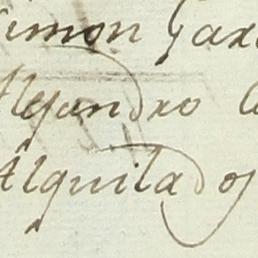 Simon Gar
Alejandro
Alquilados